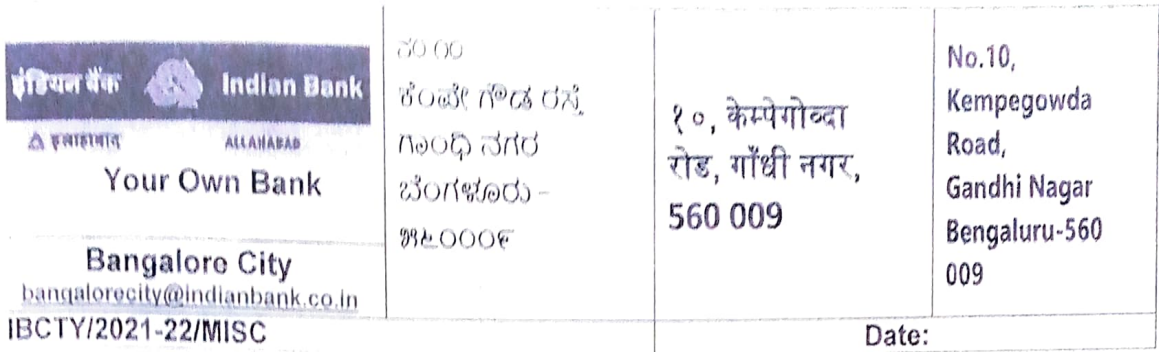 इंडियन बैंक Indian Bank
इलाहाबाद ALLAHABAD
Your Own Bank
Bangalore City
bangalorecity@indianbank.co.in
ಕೆಂಪೇ ಗೌಡ ರಸ್ತೆ
ಗಾಂಧಿ ನಗರ
ಬೆಂಗಳೂರು -
೫೬೦೦೦೯
१०, केम्पेगोव्दा
रोड, गाँधी नगर,
560 009
No.10,
Kempegowda
Road,
Gandhi Nagar
Bengaluru-560
009
IBCTY/2021-22/MISC
Date: